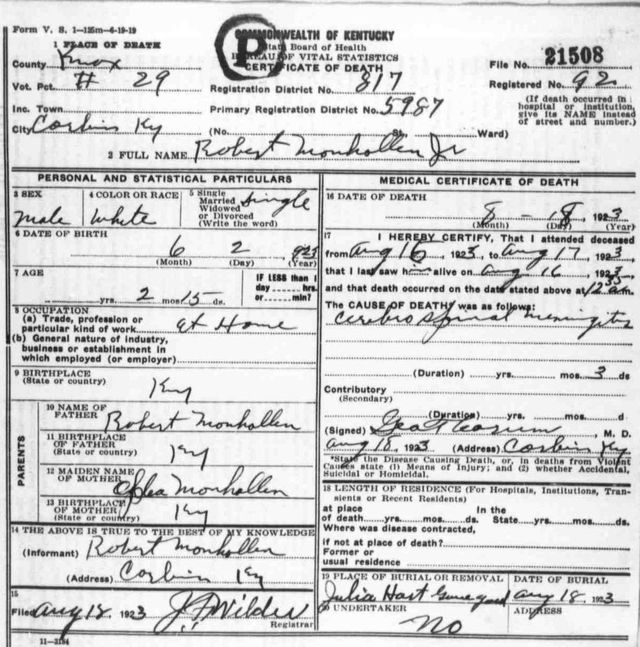 Form V. S. 1—125m—6-19-19
P
COMMONWEALTH OF KENTUCKY
State Board of Health
BUREAU OF VITAL STATISTICS
CERTIFICATE OF DEATH
1 PLACE OF DEATH
County Knox
Vot. Pct. # 29
Inc. Town
City Corbin Ky
File No. 21508
Registration District No. 817
Registered No. 92
Primary Registration District No. 5987
(If death occurred in hospital or institution, give its NAME instead of street and number.)
(No. Ward)
2 FULL NAME Robert Monhollen Jr
PERSONAL AND STATISTICAL PARTICULARS
3 SEX male
4 COLOR OR RACE White
5 Single Married Widowed or Divorced (Write the word) Single
6 DATE OF BIRTH
6 2 1923
(Month) (Day) (Year)
7 AGE
yrs. 2 mos 15 ds.
IF LESS than 1 day hrs. or min?
8 OCCUPATION
(a) Trade, profession or particular kind of work at Home
(b) General nature of industry, business or establishment in which employed (or employer)
9 BIRTHPLACE
(State or country) Ky
PARENTS
10 NAME OF FATHER Robert Monhollen
11 BIRTHPLACE OF FATHER (State or country) Ky
12 MAIDEN NAME OF MOTHER Monhollen
13 BIRTHPLACE OF MOTHER (State or country) Ky
14 THE ABOVE IS TRUE TO THE BEST OF MY KNOWLEDGE
(Informant) Robert Monhollen
(Address) Corbin Ky
15
Filed Aug 18 1923
Registrar
11—3184
MEDICAL CERTIFICATE OF DEATH
16 DATE OF DEATH
8 - 18, 1923
(Month) (Day) (Year)
17 I HEREBY CERTIFY, That I attended deceased
from Aug 16 1923, to Aug 17, 1923
that I last saw him alive on Aug 16, 1923
and that death occurred on the date stated above at 12 35 am
The CAUSE OF DEATH was as follows:
Cerebro spinal meningitis
(Duration) yrs. mos. 3 ds
Contributory
(Secondary)
(Duration) yrs. mos. d
(Signed) M. D.
Aug 18 1923 (Address) Corbin Ky
*State the Disease Causing Death, or, in deaths from Violent Causes state (1) Means of Injury; and (2) whether Accidental, Suicidal or Homicidal.
18 LENGTH OF RESIDENCE (For Hospitals, Institutions, Transients or Recent Residents)
at place of death yrs. mos. ds. In the State yrs. mos. ds.
Where was disease contracted,
if not at place of death?
Former or usual residence
19 PLACE OF BURIAL OR REMOVAL Julia Hart Graveyard
DATE OF BURIAL Aug 18 1923
20 UNDERTAKER No
ADDRESS